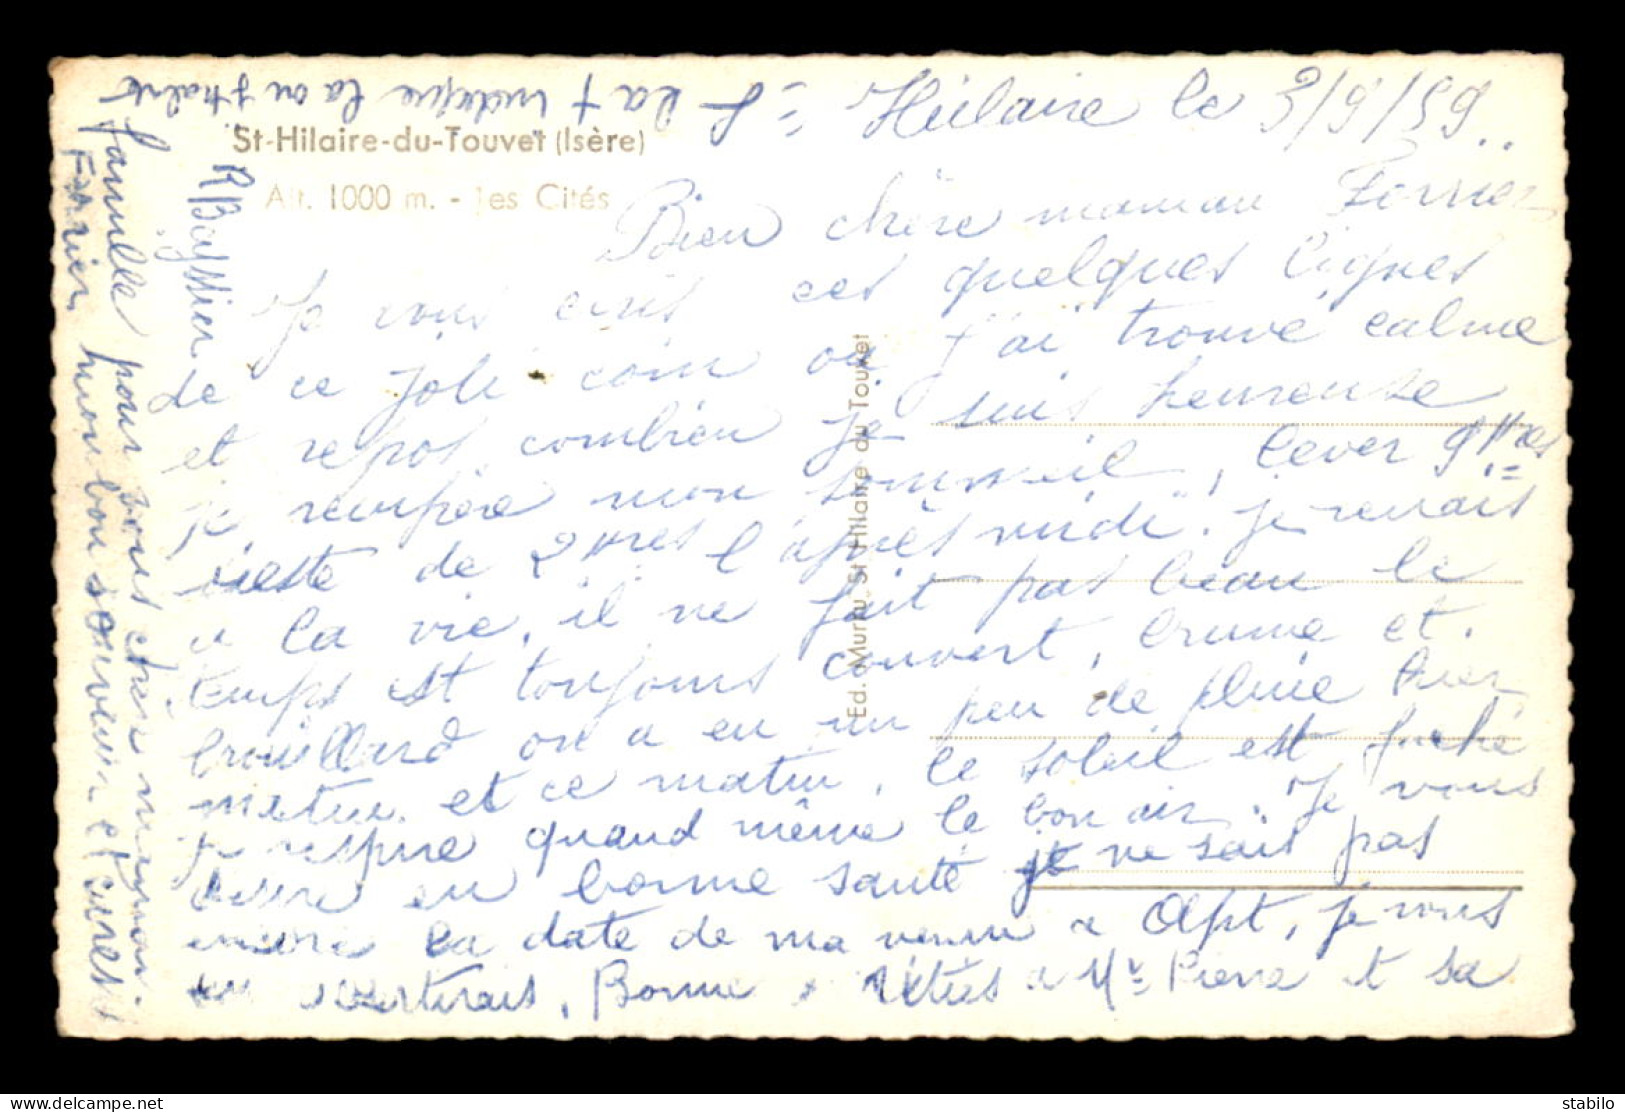 St-Hilaire-du-Touvet (Isère)
Alt. 1000 m. - les Cités
Ed. Murny. St Hilaire du Touvet
St= Hilaire le 3/9/59..
Bien chère maman Ferrier
Je vous ecris ces quelques lignes
de ce joli coin où j'ai trouvé calme
et repos, combien je suis heureuse
je récupère mon sommeil, lever 9 Hres
sieste de 2 Hres l'après midi. je renais
a la vie, il ne fait pas beau le
temps est toujours couvert, brume et
brouillard on a eu un peu de pluie hier
et ce matin, le soleil est
je respire quand même le bon air. Je vous
en bonne santé je ne sais pas
encore la date de ma venue a Apt, je vous
en avertirais, Bonne a Mr Pierre et sa
famille pour vous chère maman
Ferrier mon bon souvenir et
R Bayssier